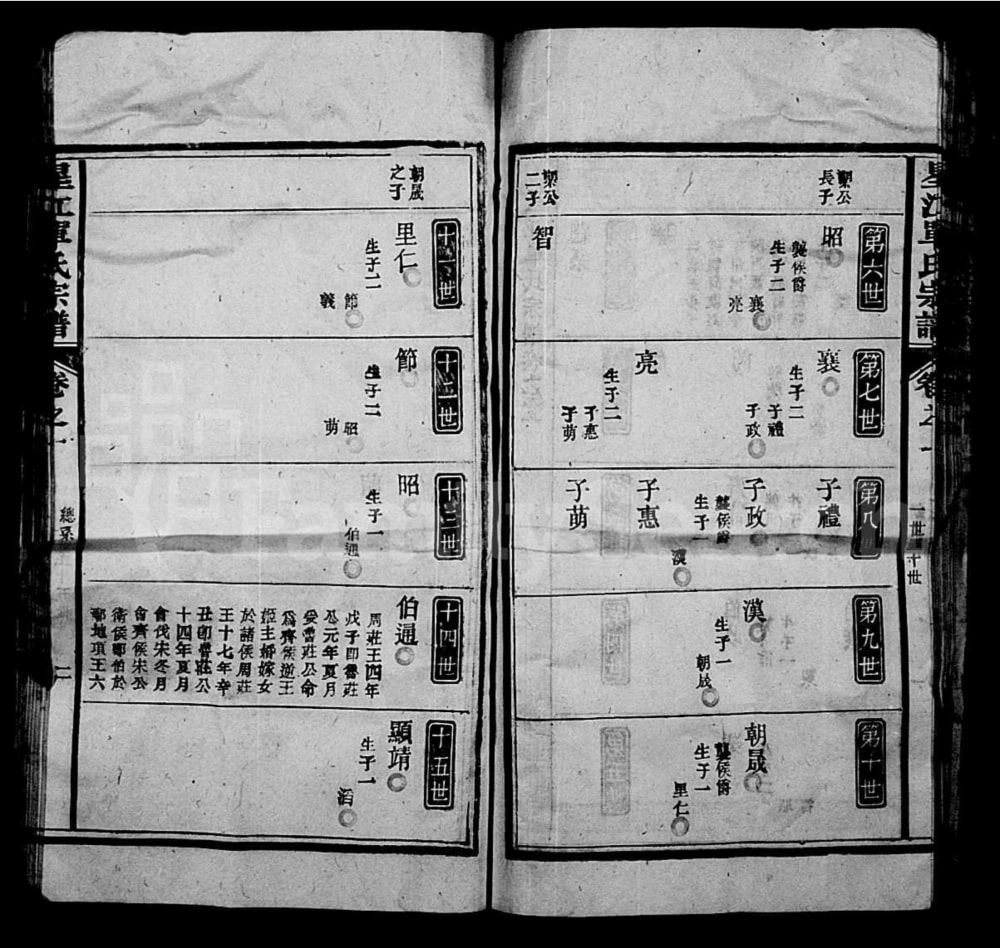 星江單氏宗譜
卷之一
一世至十世
樂公
長子
樂公
二子
第六世
昭
襲侯爵
生子二
襄
亮
智
第七世
襄
生子二
子禮
子政
亮
生子二
子惠
子萌
第八
子禮
子政
襲侯爵
生子一
漢
子惠
子萌
第九世
漢
生子一
朝晟
第十世
朝晟
襲侯爵
生子一
里仁
朝晟
之子
十一世
里仁
生子二
節
義
十二世
節
生子二
昭
萌
十三世
昭
生子一
伯通
十四世
伯通
周莊王四年
戊子即魯莊
公元年夏月
受魯莊公命
為齊侯逆王
姬主婚嫁女
於諸侯周莊
王十七年辛
丑即魯莊公
十四年夏月
會伐宋冬月
會齊侯宋公
衛侯鄭伯於
鄄地頃王六
十五世
顯靖
生子一
滔
星江單氏宗譜
卷之一
總系